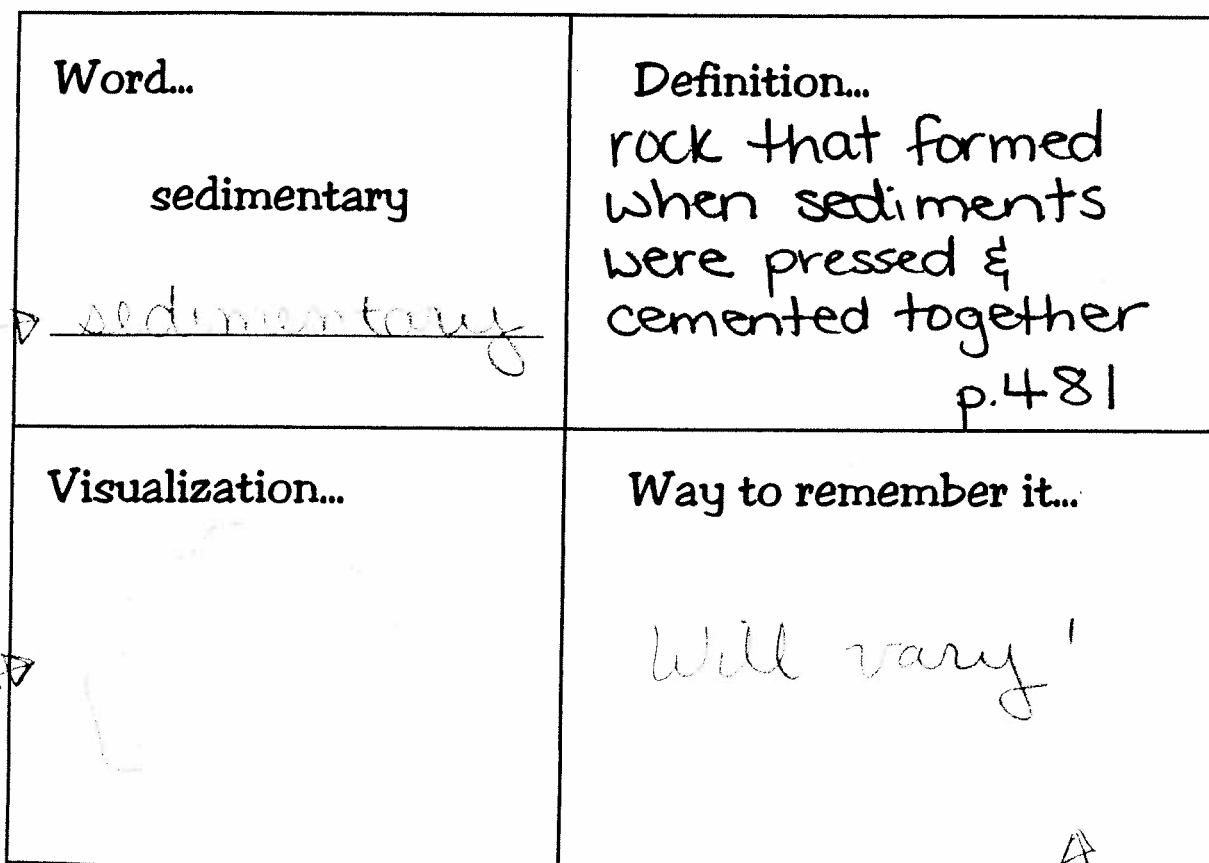 Word...
sedimentary
sedimentary
Definition...
rock that formed
when sediments
were pressed &
cemented together
p.481
Visualization...
Way to remember it...
Will vary!